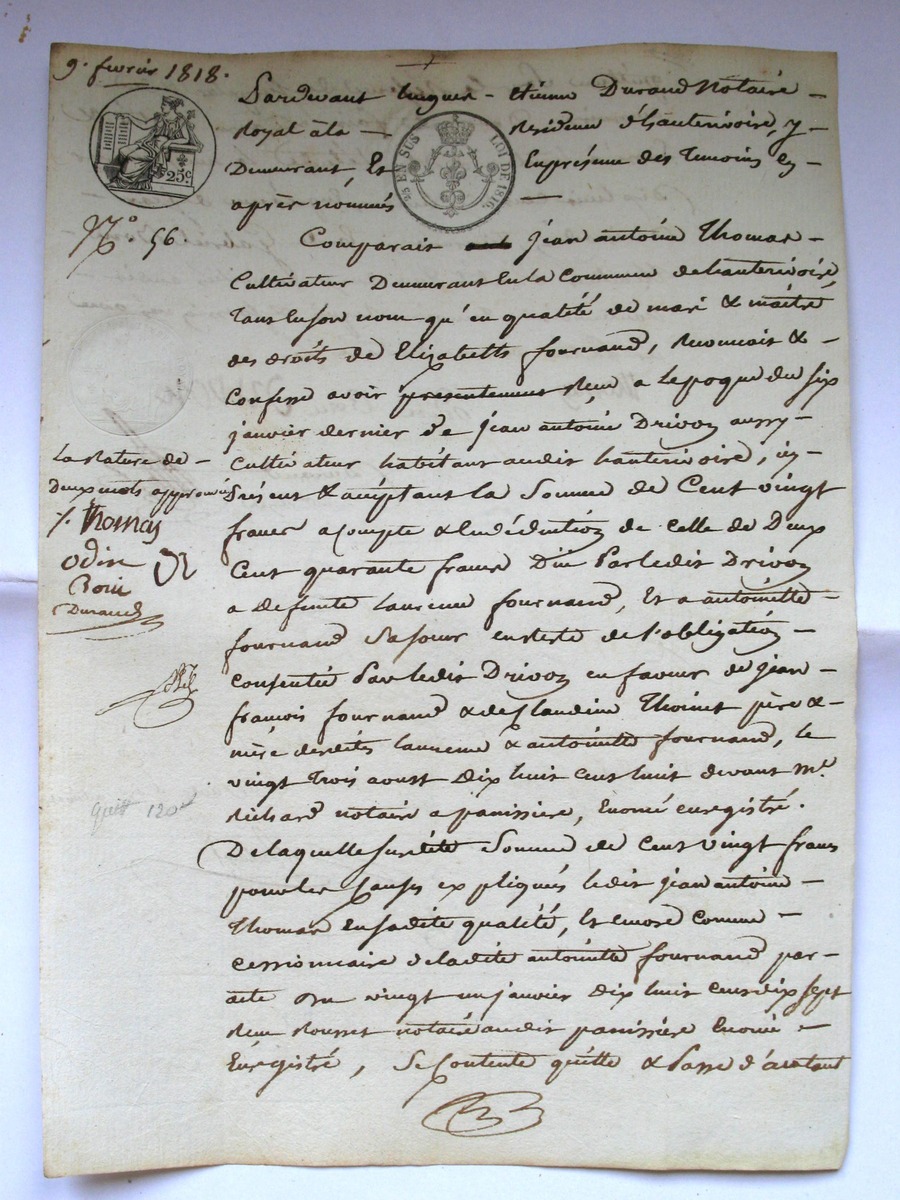 9. fevrier 1818.
Pardevant hugues - etienne Durand Notaire -
Royal à la - Residence d'hauterivoire, y -
Demeurant, Et En présence des Temoins cy -
après nommés -
25 c.
25 EN SUS LOI DE 1816.
N.o 56.
Comparait jean antoine Thomas -
Cultivateur Demeurant En la Commune de hauterivoire,
Tant En son nom qu'en qualité de mari & maître
des droits de Elizabeth fournand, Reconnait &
Confesse avoir presentement Recu a Lepoque du six
janvier dernier de jean antoine Drivon aussy -
Cultivateur habitant audit hauterivoire, icy
Présent & acceptant la Somme de Cent vingt
francs acompte & En déduction de celle de Deux
Cent quarante francs Due Par ledit Drivon
a defunte Laurence fournand, Et a antoinette -
fournand Sa soeur en reste de l'obligation -
Consentie Par ledit Drivon en faveur de jean -
françois fournand & de Claudine Thoinet père & -
mère desdites laurence & antoinette fournand, le
vingt trois aoust dix huit cent huit devant me.
Richard notaire a panissiere, Enoncé enregistré.
De laquelle susdite Somme de Cent vingt francs
pour les Causes expliqués ledit jean antoine -
Thomas En sadite qualité, Et encore comme -
cessionnaire de ladite antoinette fournand par -
acte du vingt un janvier dix huit cent dix sept
Recu Rousset notaire audit panissière Enoncé -
Enregistré, Se Contente quitte & Passe d'autant
La Rature de -
Deux mots approuvée
Thomas
odin
Durand
quitt 120